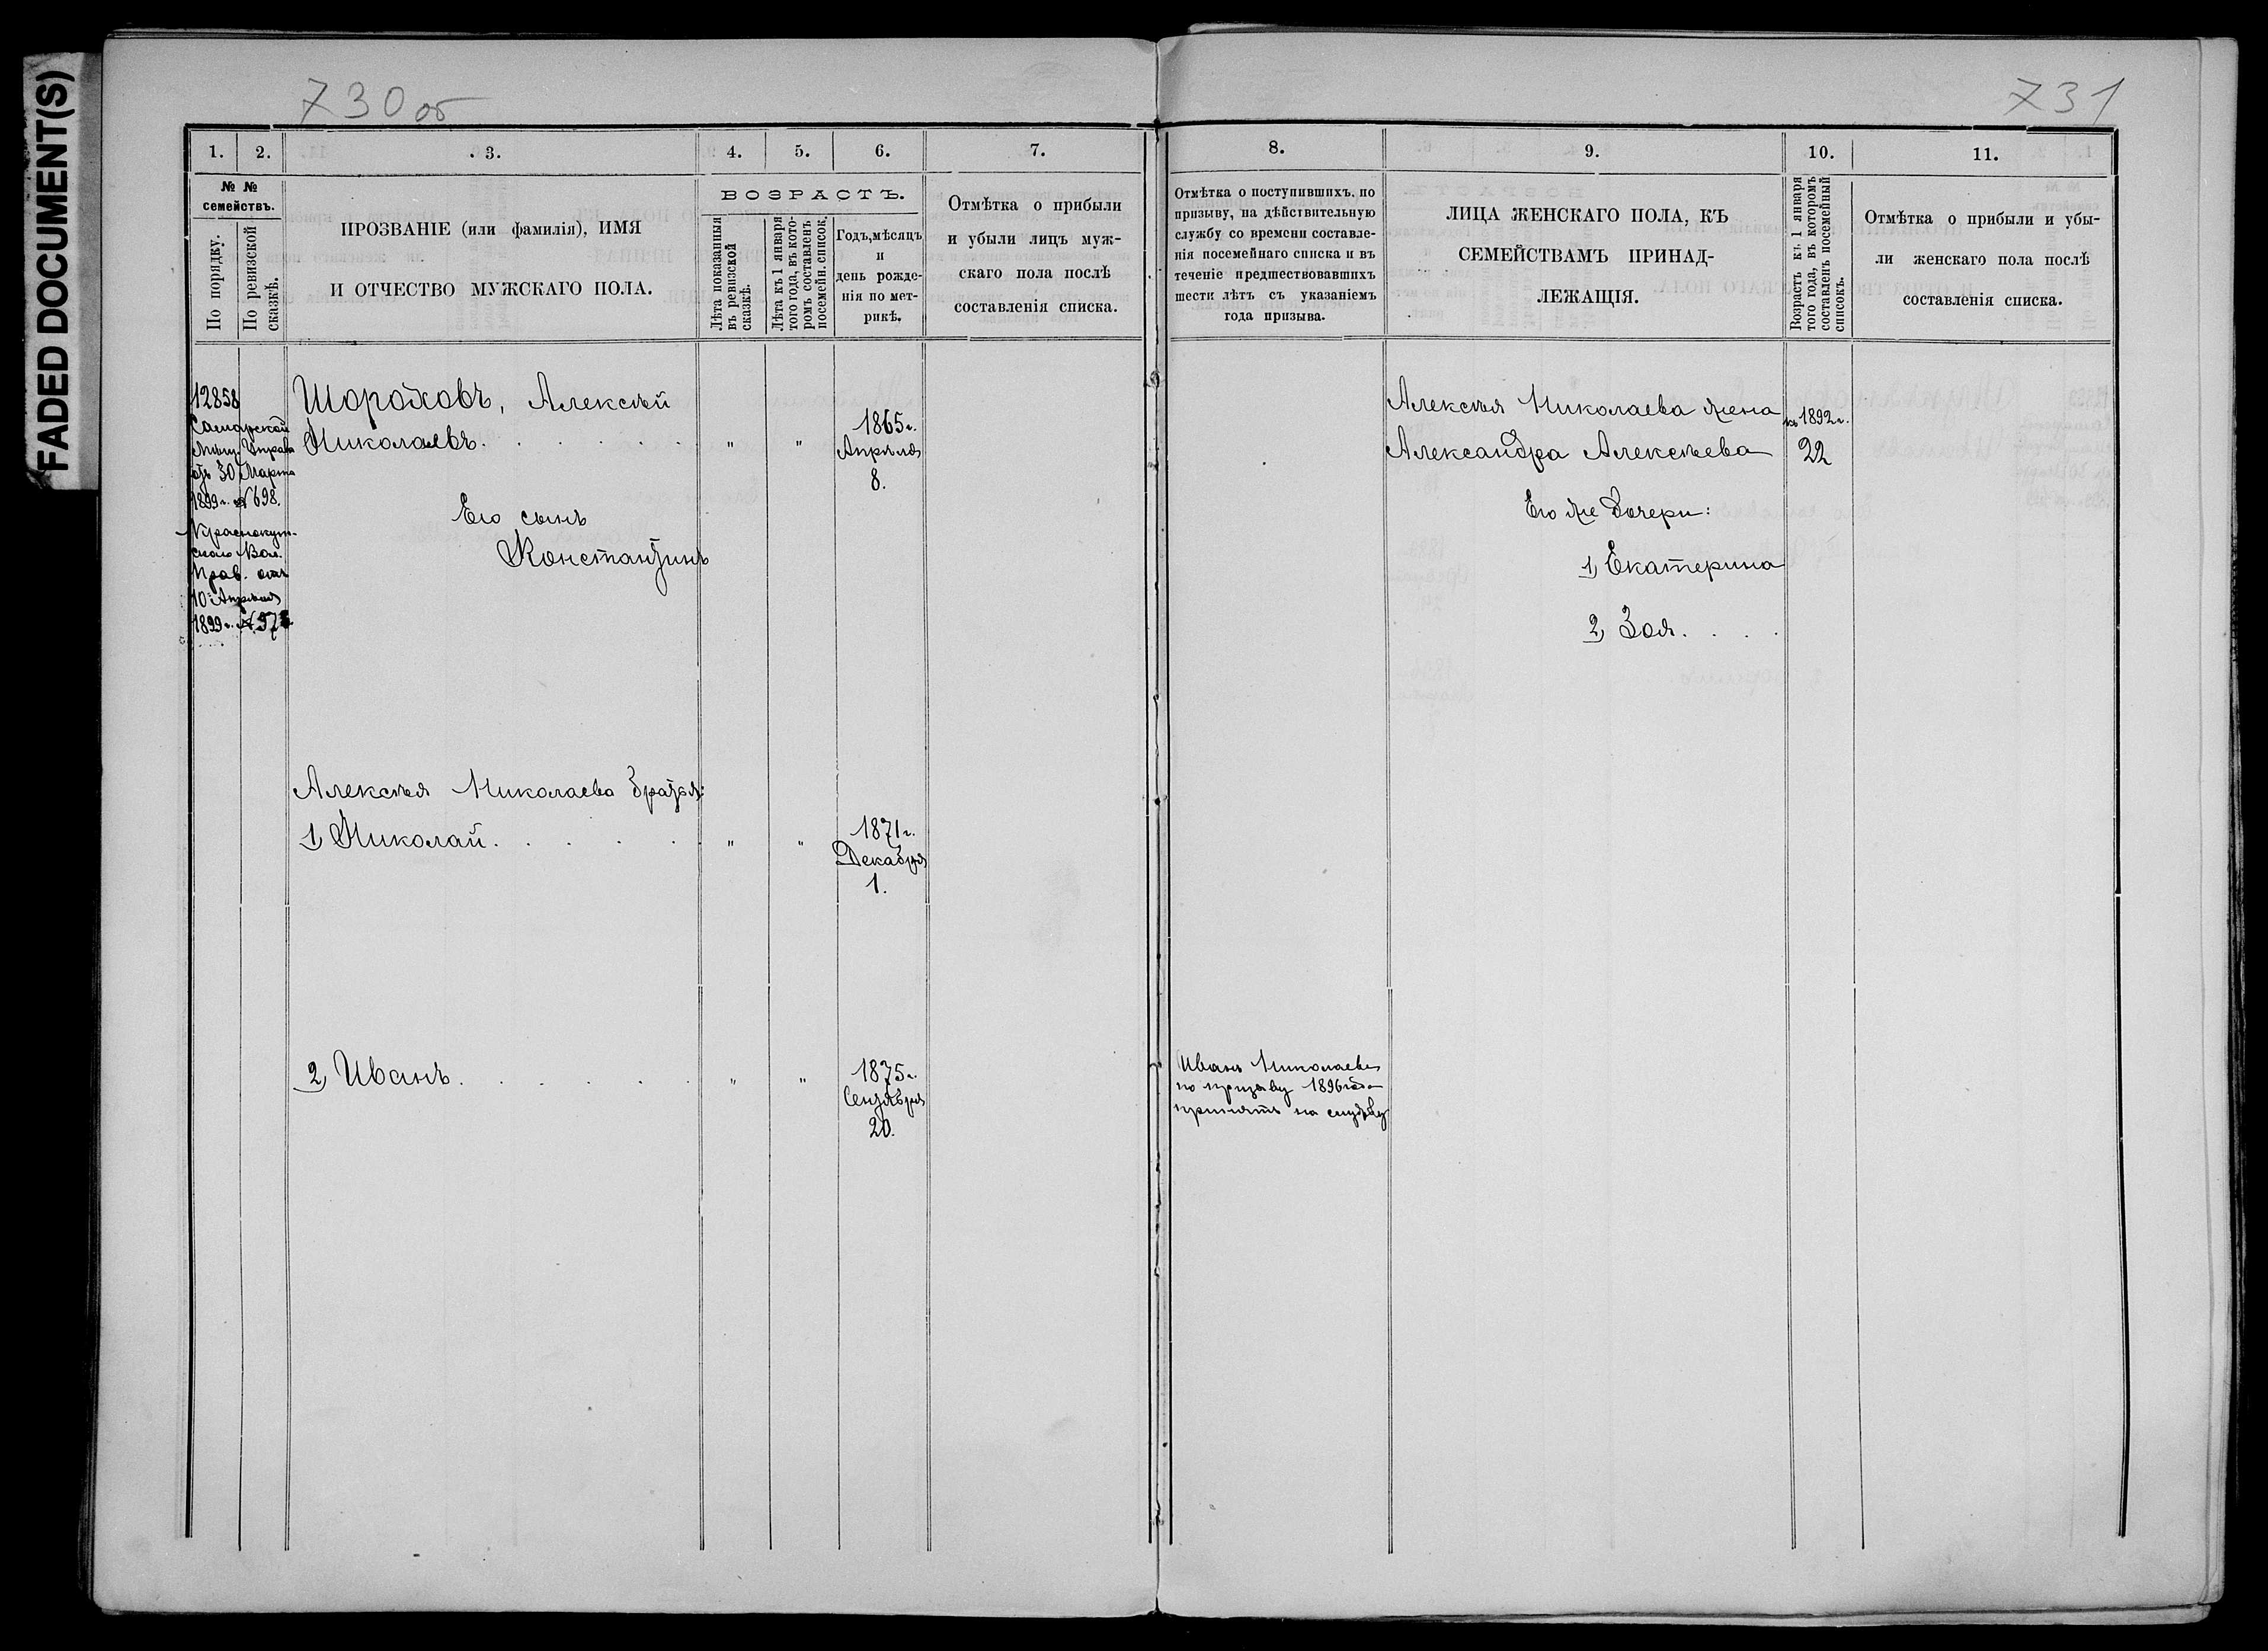 FADED DOCUMENT(S)
730 об
731
1. 2. 3. 4. 5. 6. 7.
№ №
семействъ.
По порядку.
По ревизской
сказкѣ.
ПРОЗВАНІЕ (или фамилія), ИМЯ
И ОТЧЕСТВО МУЖСКАГО ПОЛА.
ВОЗРАСТЪ.
Лѣта показанныя
въ ревизской
сказкѣ.
Лѣта къ 1 января
того года, въ кото-
ромъ составленъ
посемейн. список.
Годъ, мѣсяцъ
и
день рожде-
нія по мет-
рикѣ.
Отмѣтка о прибыли
и убыли лицъ муж-
скаго пола послѣ
составленія списка.
12858
Самарской
Мѣщ. Управы
отъ 30 Марта
1899 г. № 698.
Краснокут-
скаго Вол.
Прав. отъ
10 Апрѣля
1899 г.
Шороховъ, Алексѣй
Николаевъ. . . . . . " "
1865 г.
Апрѣля
8.
Его сынъ
Константинъ
Алексѣя Николаева братья:
1, Николай. . . . . " "
1871 г.
Декабря
1.
2, Иванъ. . . . . . " "
1875 г.
Сентября
20.
8. 9. 10. 11.
Отмѣтка о поступившихъ, по
призыву, на дѣйствительную
службу со времени составле-
нія посемейнаго списка и въ
теченіе предшествовавшихъ
шести лѣтъ съ указаніемъ
года призыва.
ЛИЦА ЖЕНСКАГО ПОЛА, КЪ
СЕМЕЙСТВАМЪ ПРИНАД-
ЛЕЖАЩІЯ.
Возрастъ къ 1 января
того года, въ которомъ
составленъ посемейный
списокъ.
Отмѣтка о прибыли и убы-
ли женскаго пола послѣ
составленія списка.
Алексѣя Николаева жена
Александра Алексѣева
къ 1892 г.
22
Его же дочери:
1, Екатерина
2, Зоя. . . .
Иванъ Николаевъ
по призыву 1896 года
принятъ на службу